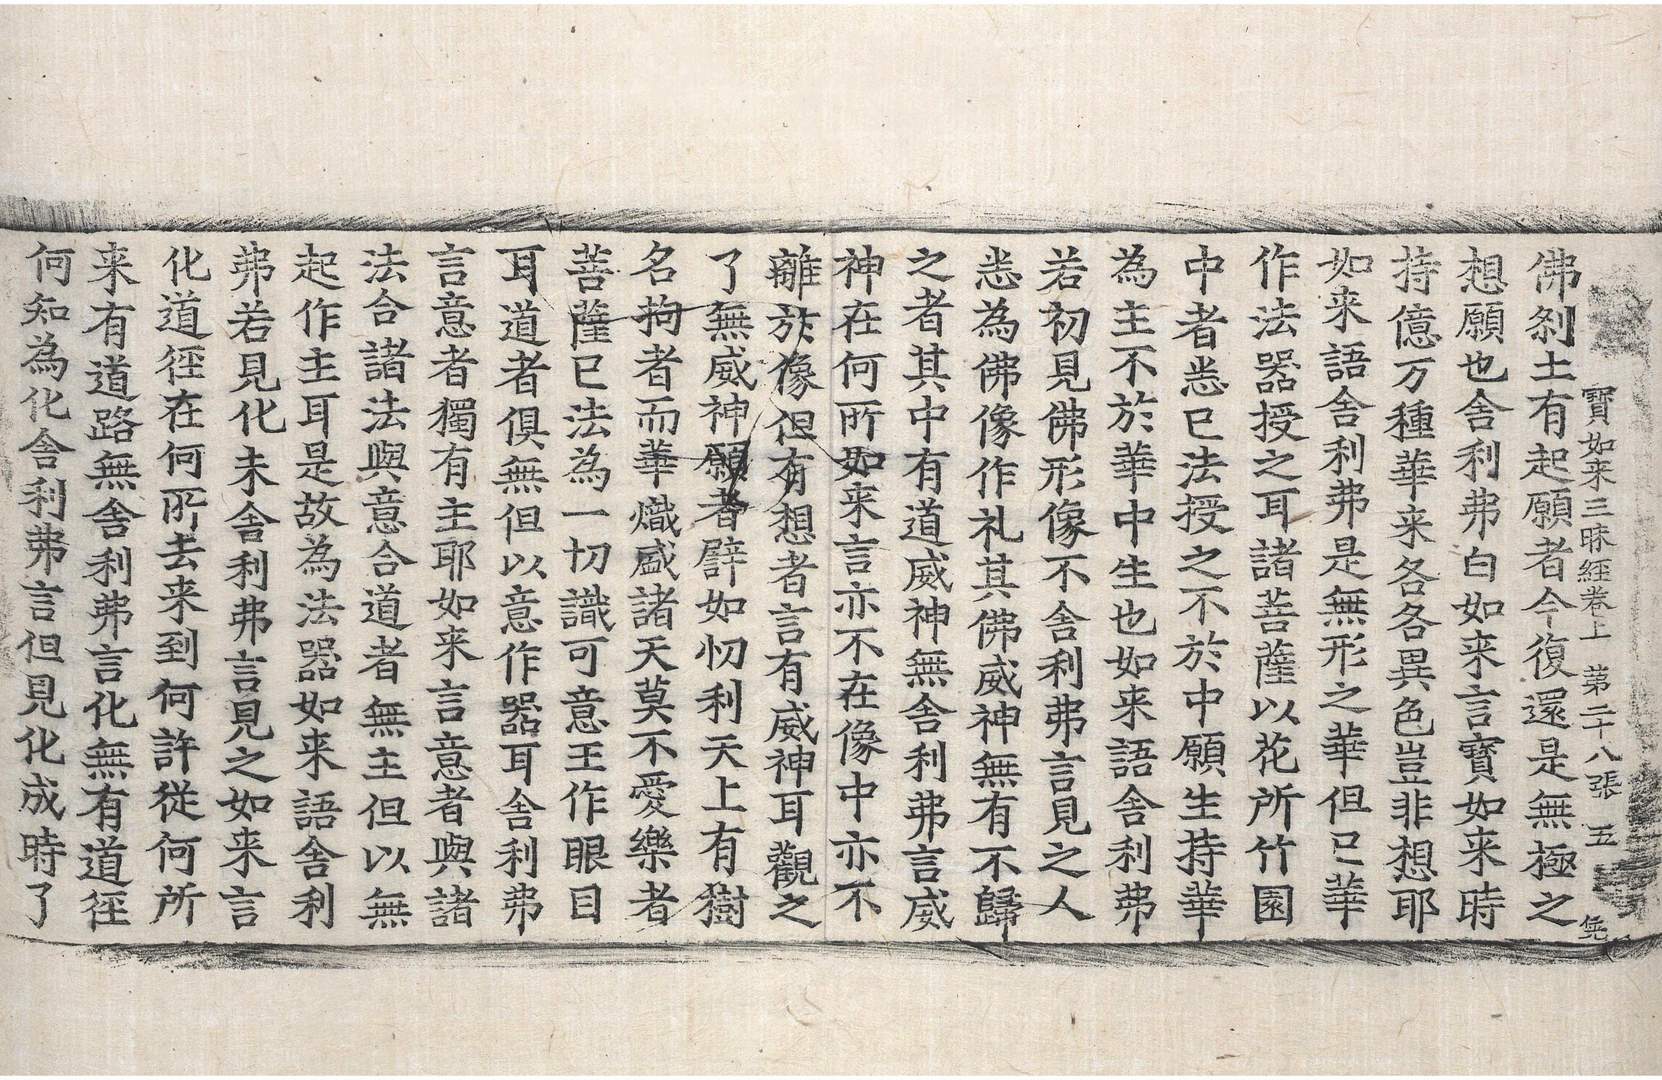 寶如来三昧經卷上　第二十八張　五
佛刹土有起願者今復還是無極之
想願也舎利弗白如来言寶如来時
持億万種華来各各異色豈非想耶
如来語舎利弗是無形之華但已華
作法器授之耳諸菩薩以花所竹園
中者悉已法授之不於中願生持華
為主不於華中生也如来語舎利弗
若初見佛形像不舎利弗言見之人
悉為佛像作礼其佛威神無有不歸
之者其中有道威神無舎利弗言威
神在何所如来言亦不在像中亦不
離於像但有想者言有威神耳觀之
了無威神願者譬如忉利天上有樹
名拘者而華熾盛諸天莫不愛樂者
菩薩已法為一切識可意王作眼目
耳道者俱無但以意作器耳舎利弗
言意者獨有主耶如来言意者與諸
法合諸法與意合道者無主但以無
起作主耳是故為法器如来語舎利
弗若見化未舎利弗言見之如来言
化道徑在何所去来到何許從何所
来有道路無舎利弗言化無有道徑
何知為化舎利弗言但見化成時了